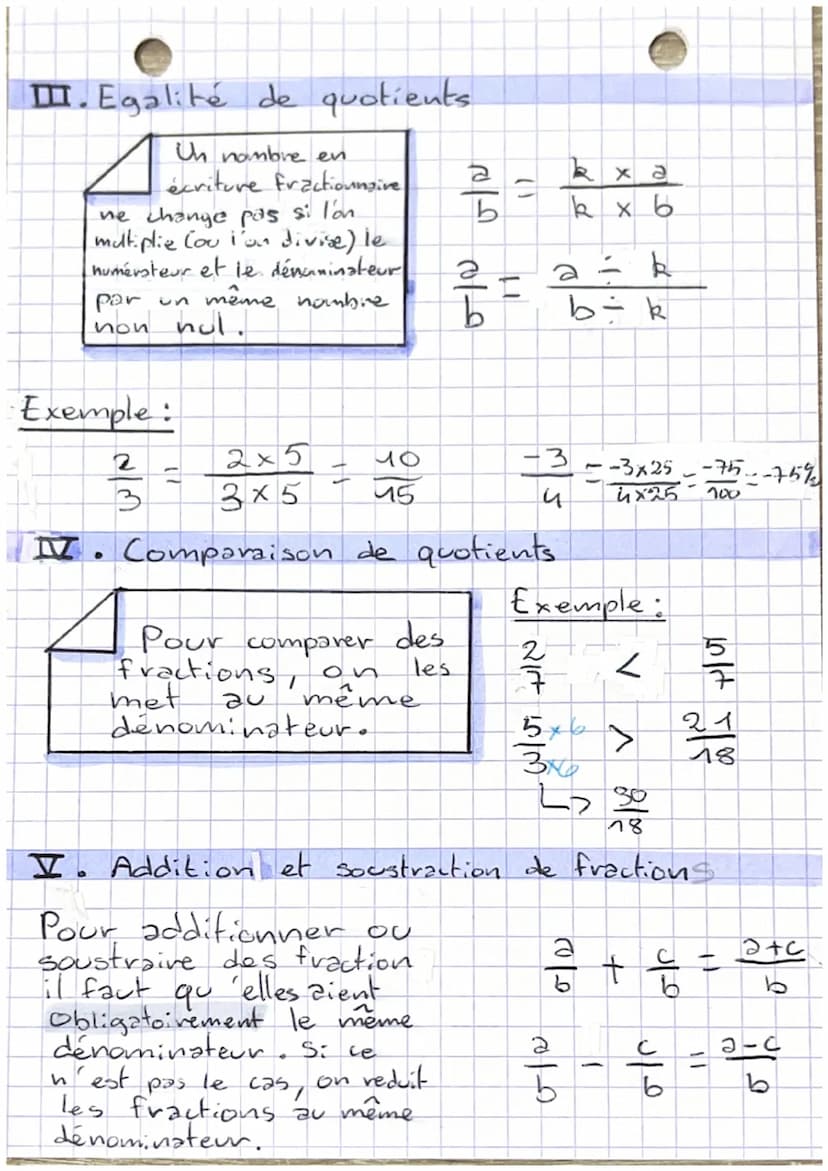 III. Egalité de quotients
Un nombre en
écriture fractionnaire
ne change pas si l'on
multiplie (ou l'on divise) le
numérateur et le dénuminateur
par un même nombre
non nul.
a/b = k × a / k × b
a/b = a ÷ k / b ÷ k
Exemple :
2/3 = 2×5 / 3×5 = 10/15
-3/4 = -3×25 / 4×25 = -75/100 = -75%
IV. Comparaison de quotients
Pour comparer des
fractions, on les
met au même
dénominateur.
Exemple :
2/7 < 5/7
5×6 / 3×6 > 21/18
↳ 30/18
V. Addition et soustraction de fractions
Pour additionner ou
soustraire des fraction
il fact qu'elles aient
obligatoirement le même
dénominateur. Si ce
n'est pas le cas, on reduit
les fractions au même
dénominateur.
a/b + c/b = a+c / b
a/b - c/b = a-c / b